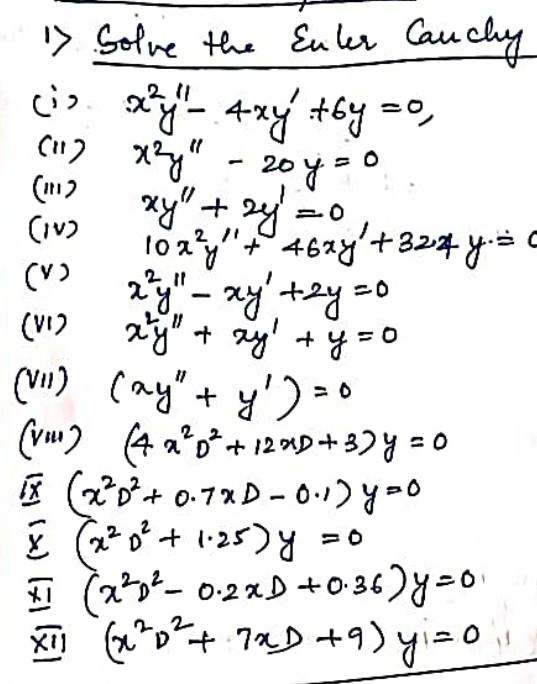 1> Solve the Euler Cauchy
(i) x²y'' - 4xy' + 6y = 0,
(ii) x²y'' - 20y = 0
(iii) xy'' + 2y' = 0
(iv) 10x²y'' + 46xy' + 32.4 y = 0
(v) x²y'' - xy' + 2y = 0
(vi) x²y'' + xy' + y = 0
(vii) (xy'' + y') = 0
(viii) (4x²D² + 12xD + 3)y = 0
ix (x²D² + 0.7xD - 0.1)y = 0
x (x²D² + 1.25)y = 0
xi (x²D² - 0.2xD + 0.36)y = 0
xii (x²D² + 7xD + 9) y = 0